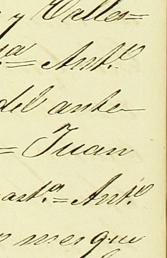 y Valles=
ya = Antº
del ante
= Juan
astª = Antº
mesque